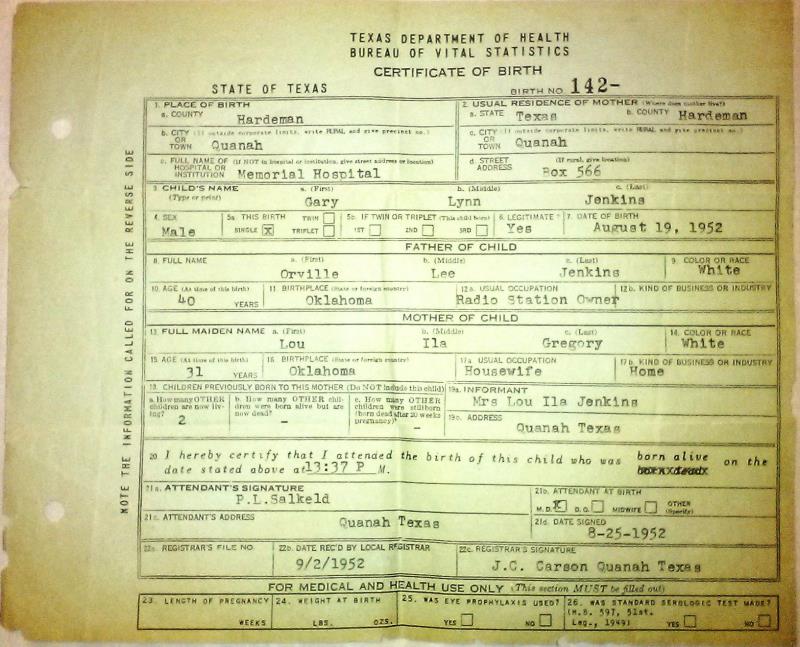 TEXAS DEPARTMENT OF HEALTH
BUREAU OF VITAL STATISTICS
CERTIFICATE OF BIRTH
STATE OF TEXAS
BIRTH NO. 142-
NOTE THE INFORMATION CALLED FOR ON THE REVERSE SIDE
1. PLACE OF BIRTH
a. COUNTY Hardeman
2. USUAL RESIDENCE OF MOTHER (Where does mother live?)
a. STATE Texas b. COUNTY Hardeman
b. CITY (If outside corporate limits, write RURAL and give precinct no.)
OR
TOWN Quanah
c. CITY (If outside corporate limits, write RURAL and give precinct no.)
OR
TOWN Quanah
c. FULL NAME OF (If NOT in hospital or institution, give street address or location)
HOSPITAL OR
INSTITUTION Memorial Hospital
d. STREET (If rural, give location)
ADDRESS Box 566
3. CHILD'S NAME a. (First) b. (Middle) c. (Last)
(Type or print) Gary Lynn Jenkins
4. SEX
Male
5a. THIS BIRTH
SINGLE X TWIN
TRIPLET
5b. IF TWIN OR TRIPLET (This child born)
1ST 2ND 3RD
6. LEGITIMATE?
Yes
7. DATE OF BIRTH
August 19, 1952
FATHER OF CHILD
8. FULL NAME a. (First) b. (Middle) c. (Last)
Orville Lee Jenkins
9. COLOR OR RACE
White
10. AGE (At time of this birth)
40 YEARS
11. BIRTHPLACE (State or foreign country)
Oklahoma
12a. USUAL OCCUPATION
Radio Station Owner
12b. KIND OF BUSINESS OR INDUSTRY
MOTHER OF CHILD
13. FULL MAIDEN NAME a. (First) b. (Middle) c. (Last)
Lou Ila Gregory
14. COLOR OR RACE
White
15. AGE (At time of this birth)
31 YEARS
16. BIRTHPLACE (State or foreign country)
Oklahoma
17a. USUAL OCCUPATION
Housewife
17b. KIND OF BUSINESS OR INDUSTRY
Home
18. CHILDREN PREVIOUSLY BORN TO THIS MOTHER (Do NOT include this child)
a. How many OTHER
children are now liv-
ing?
2
b. How many OTHER chil-
dren were born alive but are
now dead?
-
c. How many OTHER
children were stillborn
(born dead after 20 weeks
pregnancy)?
-
19a. INFORMANT
Mrs Lou Ila Jenkins
19b. ADDRESS
Quanah Texas
20. I hereby certify that I attended the birth of this child who was born alive on the
date stated above at 13:37 P M.
21a. ATTENDANT'S SIGNATURE
P.L.Salkeld
21b. ATTENDANT AT BIRTH
M.D. X D.O. MIDWIFE OTHER
(Specify)
21c. ATTENDANT'S ADDRESS
Quanah Texas
21d. DATE SIGNED
8-25-1952
22a. REGISTRAR'S FILE NO.
22b. DATE REC'D BY LOCAL REGISTRAR
9/2/1952
22c. REGISTRAR'S SIGNATURE
J.C. Carson Quanah Texas
FOR MEDICAL AND HEALTH USE ONLY (This section MUST be filled out)
23. LENGTH OF PREGNANCY
WEEKS
24. WEIGHT AT BIRTH
LBS. OZS.
25. WAS EYE PROPHYLAXIS USED?
YES NO
26. WAS STANDARD SEROLOGIC TEST MADE?
(H.B. 597, 51st.
Leg., 1949) YES NO